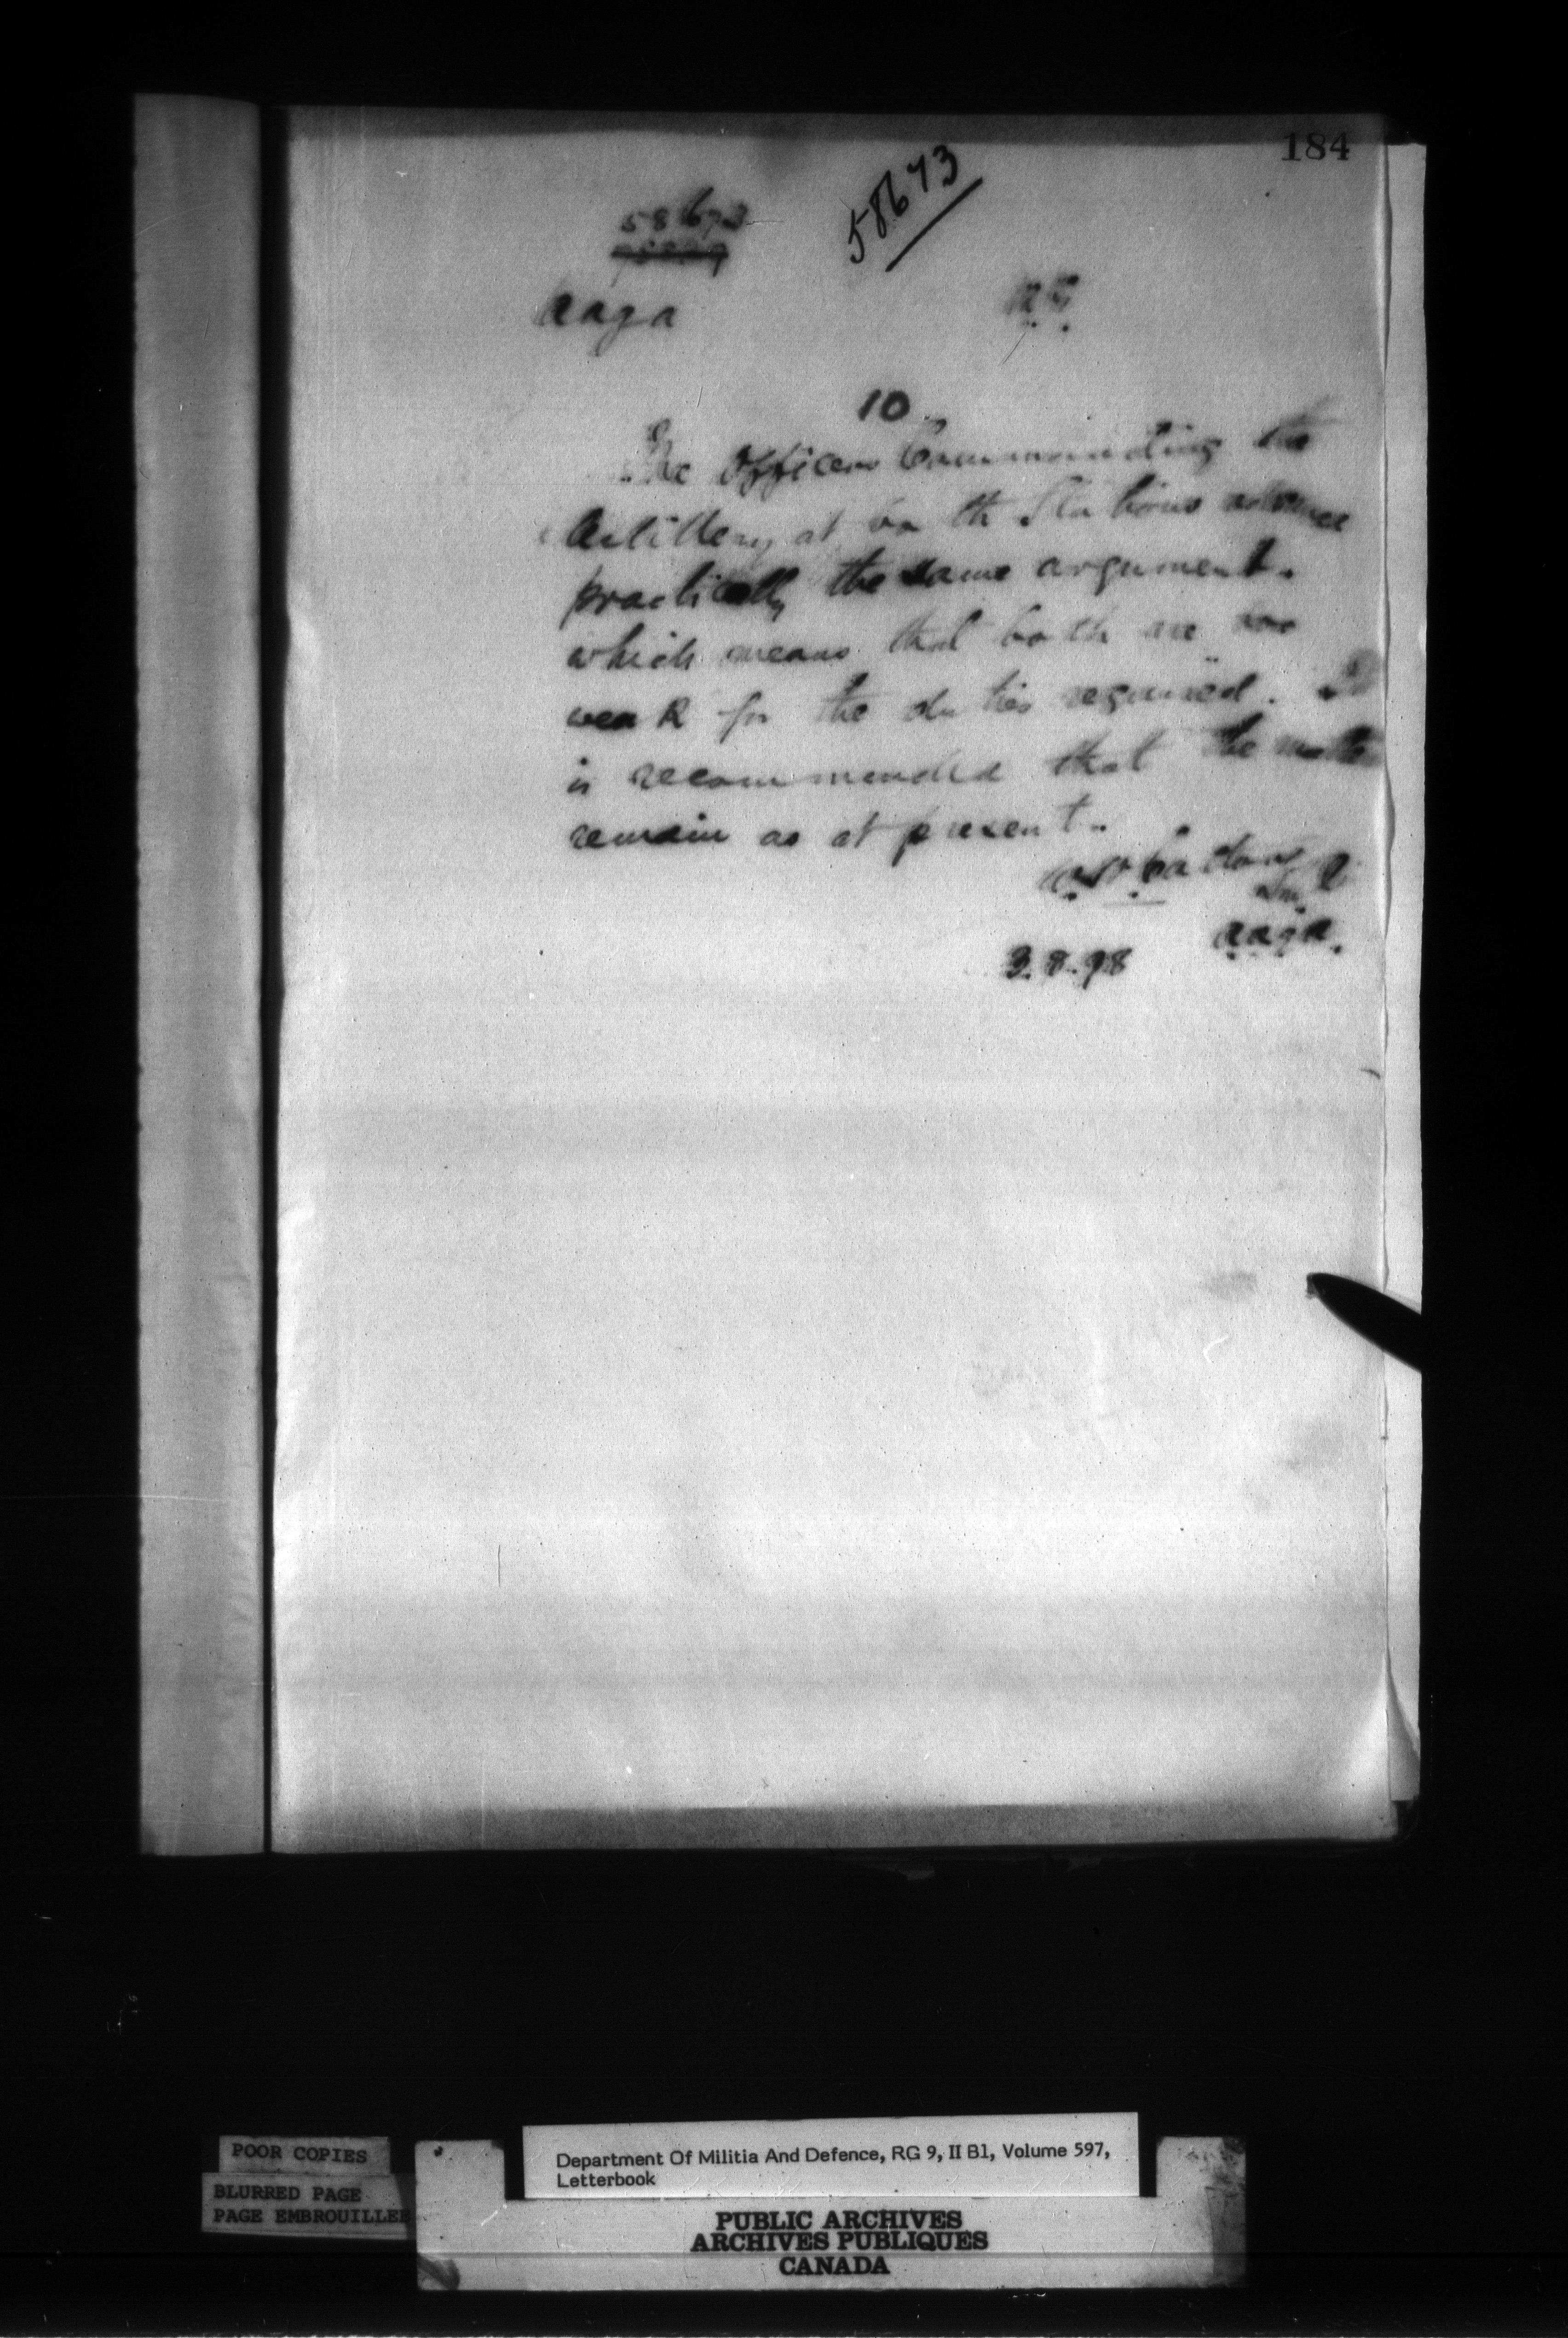 184
58673
58673
aaga
10
The Officers Commanding the
Artillery at both Stations advance
practically the same argument.
which means that both are too
weak for the duties required. It
is recommended that the matter
remain as at present.
aaga.
3.8.98
POOR COPIES
BLURRED PAGE
PAGE EMBROUILLEE
Department Of Militia And Defence, RG 9, II B1, Volume 597,
Letterbook
PUBLIC ARCHIVES
ARCHIVES PUBLIQUES
CANADA